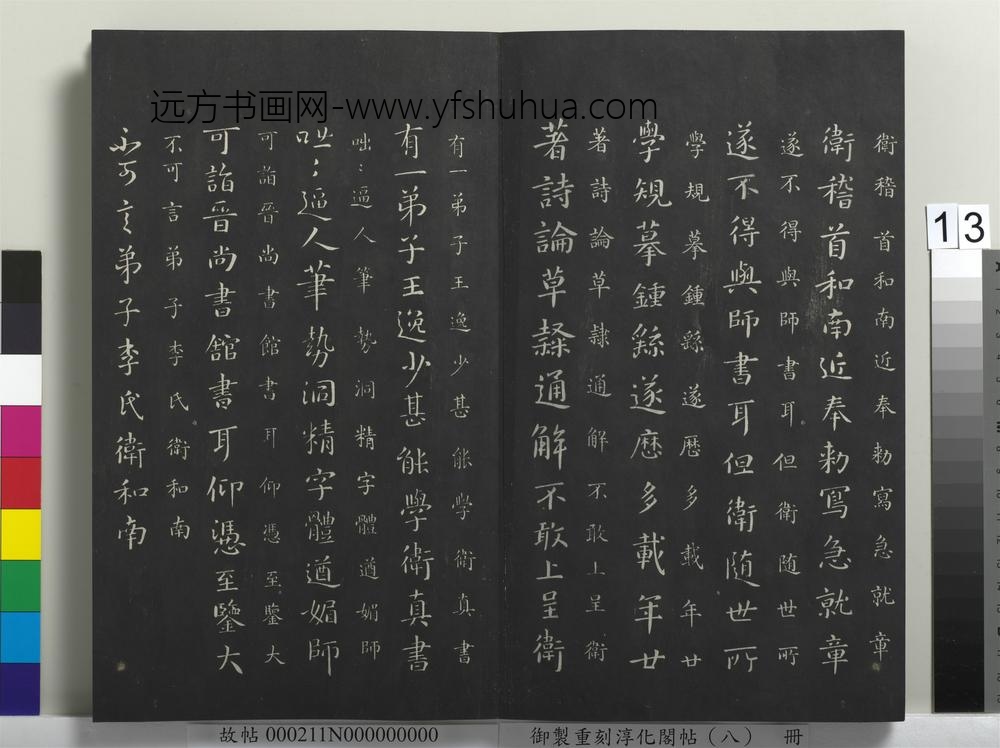 远方书画网-www.yfshuhua.com
衛稽首和南近奉勅寫急就章
衛稽首和南近奉勅寫急就章
遂不得與師書耳但衛随世所
遂不得與師書耳但衛随世所
學規摹鍾繇遂歷多載年廿
學規摹鍾繇遂歷多載年廿
著詩論草隷通解不敢上呈衛
著詩論草隷通解不敢上呈衛
有一弟子王逸少甚能學衛真書
有一弟子王逸少甚能學衛真書
咄：逼人筆勢洞精字體遒媚師
咄：逼人筆勢洞精字體遒媚師
可詣晉尚書館書耳仰憑至鑒大
可詣晉尚書館書耳仰憑至鑒大
不可言弟子李氏衛和南
不可言弟子李氏衛和南
13
故帖 000211N000000000
御製重刻淳化閣帖（八） 冊